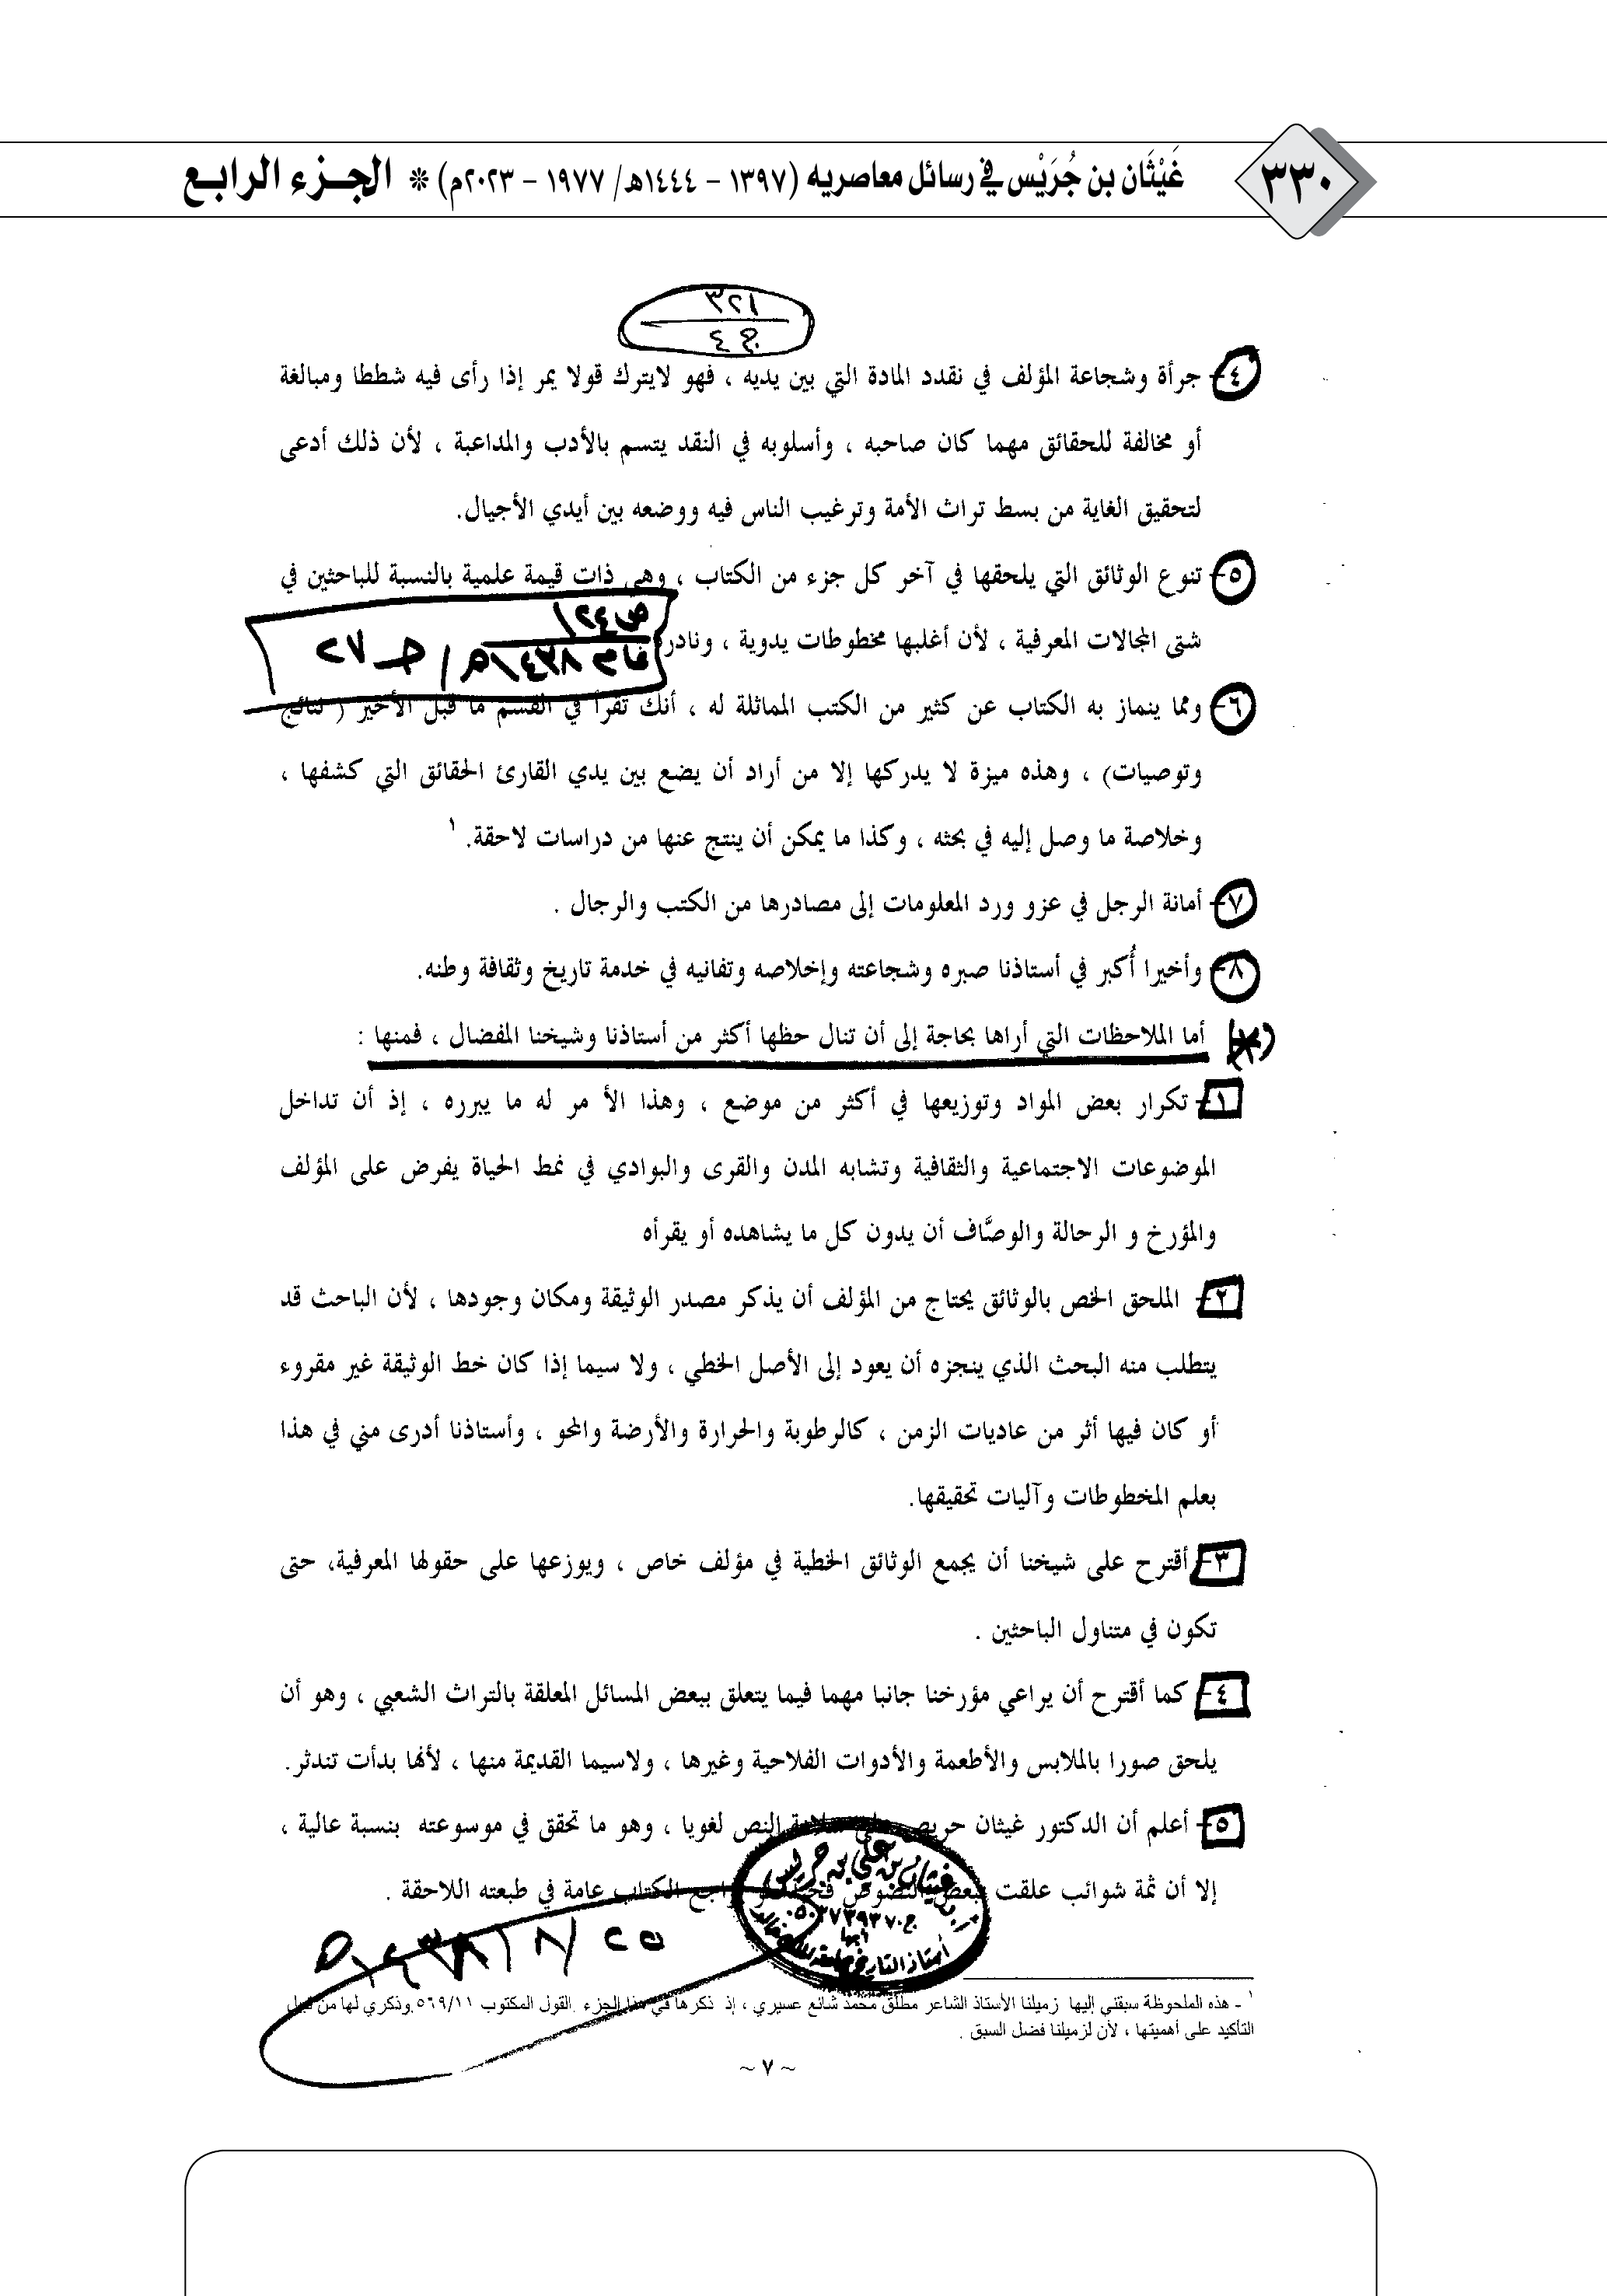 ٣٣٠
غَيْثَان بن جُرَيْس في رسائل معاصريه (١٣٩٧ – ١٤٤٤هـ/ ١٩٧٧ – ٢٠٢٣م) * الجـزء الرابـع
٣٢١
ج ٤
٤- جرأة وشجاعة المؤلف في نقدد المادة التي بين يديه ، فهو لايترك قولا يمر إذا رأى فيه شططا ومبالغة
أو مخالفة للحقائق مهما كان صاحبه ، وأسلوبه في النقد يتسم بالأدب والمداعبة ، لأن ذلك أدعى
لتحقيق الغاية من بسط تراث الأمة وترغيب الناس فيه ووضعه بين أيدي الأجيال.
٥- تنوع الوثائق التي يلحقها في آخر كل جزء من الكتاب ، وهي ذات قيمة علمية بالنسبة للباحثين في
شتى المجالات المعرفية ، لأن أغلبها مخطوطات يدوية ، ونادرة
٦- ومما ينماز به الكتاب عن كثير من الكتب المماثلة له ، أنك تقرأ في القسم ما قبل الأخير ( نتائج
وتوصيات) ، وهذه ميزة لا يدركها إلا من أراد أن يضع بين يدي القارئ الحقائق التي كشفها ،
وخلاصة ما وصل إليه في بحثه ، وكذا ما يمكن أن ينتج عنها من دراسات لاحقة. ١
٧- أمانة الرجل في عزو ورد المعلومات إلى مصادرها من الكتب والرجال .
٨- وأخيرا أُكبر في أستاذنا صبره وشجاعته وإخلاصه وتفانيه في خدمة تاريخ وثقافة وطنه.
أما الملاحظات التي أراها بحاجة إلى أن تنال حظها أكثر من أستاذنا وشيخنا المفضال ، فمنها :
١- تكرار بعض المواد وتوزيعها في أكثر من موضع ، وهذا الأ مر له ما يبرره ، إذ أن تداخل
الموضوعات الاجتماعية والثقافية وتشابه المدن والقرى والبوادي في نمط الحياة يفرض على المؤلف
والمؤرخ و الرحالة والوصَّاف أن يدون كل ما يشاهده أو يقرأه
٢- الملحق الخص بالوثائق يحتاج من المؤلف أن يذكر مصدر الوثيقة ومكان وجودها ، لأن الباحث قد
يتطلب منه البحث الذي ينجزه أن يعود إلى الأصل الخطي ، ولا سيما إذا كان خط الوثيقة غير مقروء
أو كان فيها أثر من عاديات الزمن ، كالرطوبة والحرارة والأرضة والمحو ، وأستاذنا أدرى مني في هذا
بعلم المخطوطات وآليات تحقيقها.
٣- أقترح على شيخنا أن يجمع الوثائق الخطية في مؤلف خاص ، ويوزعها على حقولها المعرفية، حتى
تكون في متناول الباحثين .
٤- كما أقترح أن يراعي مؤرخنا جانبا مهما فيما يتعلق ببعض المسائل المعلقة بالتراث الشعبي ، وهو أن
يلحق صورا بالملابس والأطعمة والأدوات الفلاحية وغيرها ، ولاسيما القديمة منها ، لأنها بدأت تندثر.
٥- أعلم أن الدكتور غيثان حريص على سلامة النص لغويا ، وهو ما تحقق في موسوعته بنسبة عالية ،
إلا أن ثمة شوائب علقت ببعض النصوص راجع الكتاب عامة في طبعته اللاحقة .
١ - هذه الملحوظة سبقني إليها زميلنا الأستاذ الشاعر مطلق محمد شائع عسيري ، إذ ذكرها في هذا الجزء .القول المكتوب ٥٦٩/١١.وذكري لها من قبل
التأكيد على أهميتها ، لأن لزميلنا فضل السبق .
~ ٧ ~